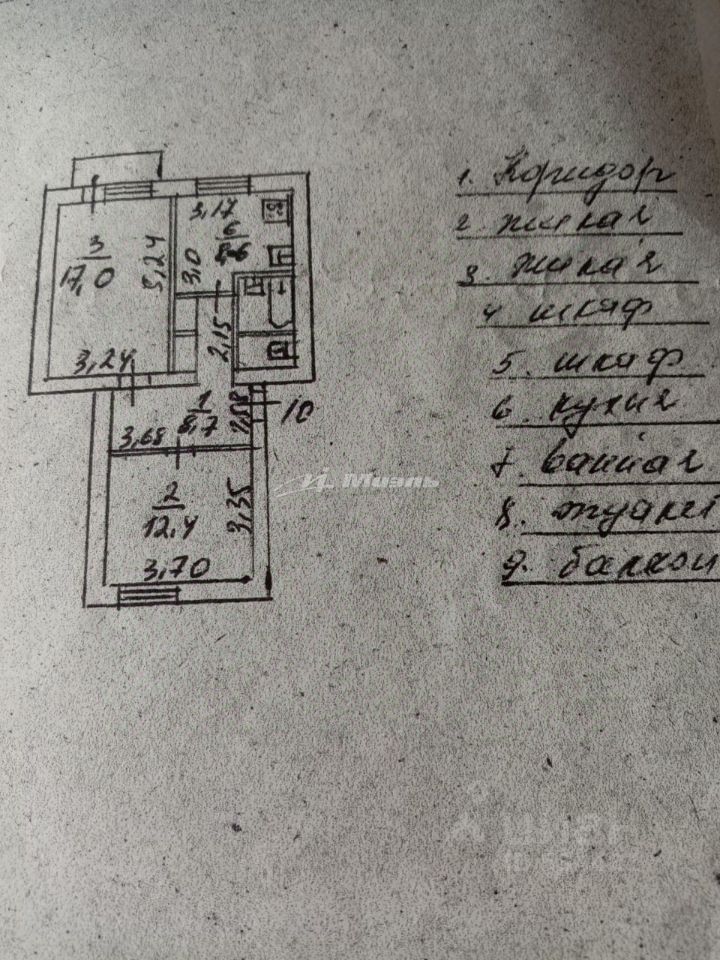 1. Коридор
2. жилая
3. жилая
4. шкаф
5. шкаф
6. кухня
7. ванная
8. туалет
9. балкон
3
17,0
5,24
3,24
3,17
6
3,0
2,15
1
8,7
3,68
10
2
12,4
3,35
3,70
Миэль
циан